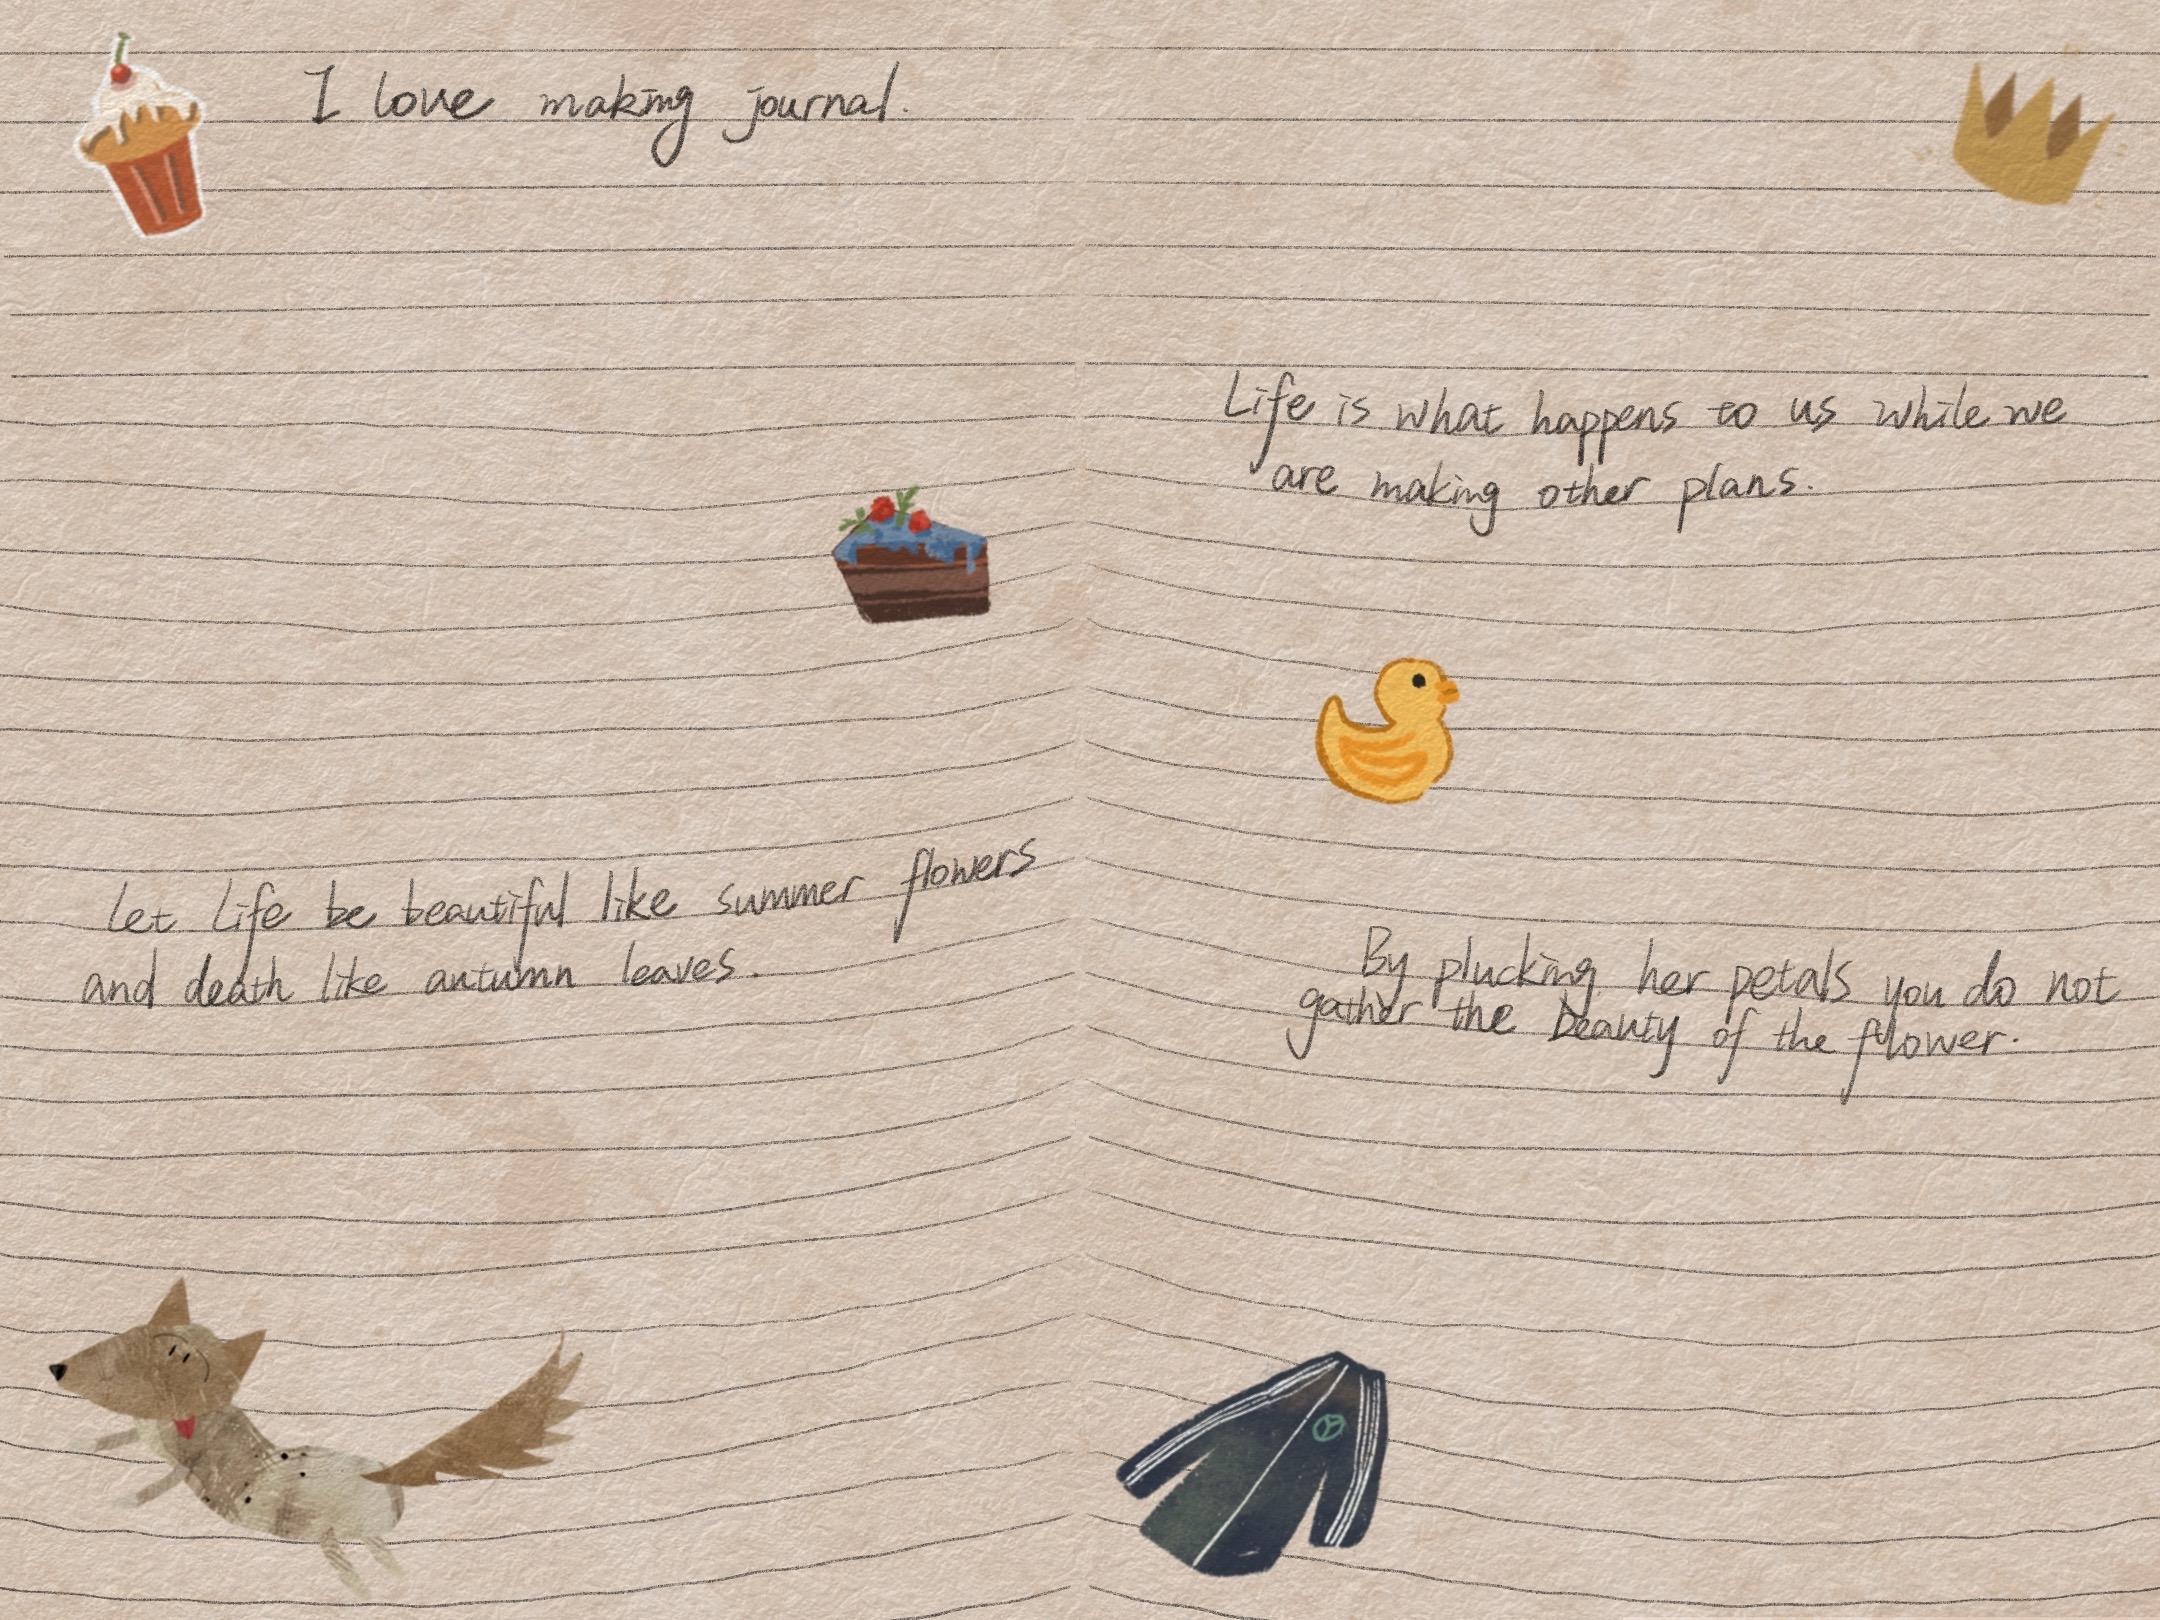 I love making journal.
Let Life be beautiful like summer flowers
and death like autumn leaves.
Life is what happens to us while we
are making other plans.
By plucking her petals you do not
gather the beauty of the flower.